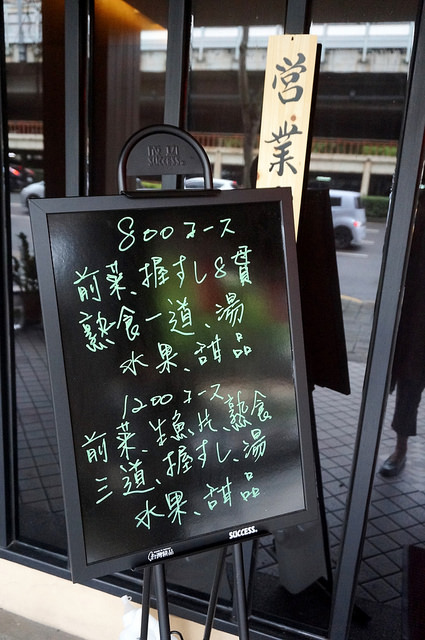 営業
SUCCESS.
800コース
前菜、握すし8貫
熟食一道、湯
水果、甜品
1200コース
前菜、生魚片、熟食
三道、握すし、湯
水果、甜品
SUCCESS.